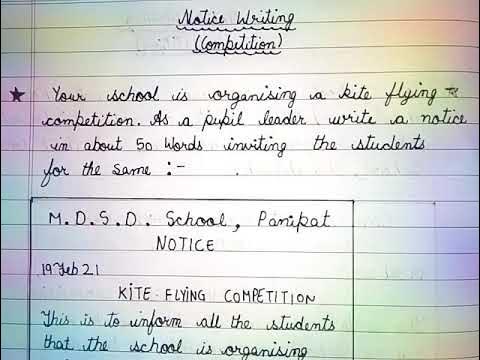 Notice Writing
(Competition)
★ Your school is organising a kite flying
competition. As a pupil leader write a notice
in about 50 words inviting the students
for the same :-
M.D.S.D. School, Panipat
NOTICE
19 Feb 21
KITE-FLYING COMPETITION
This is to inform all the students
that the school is organising